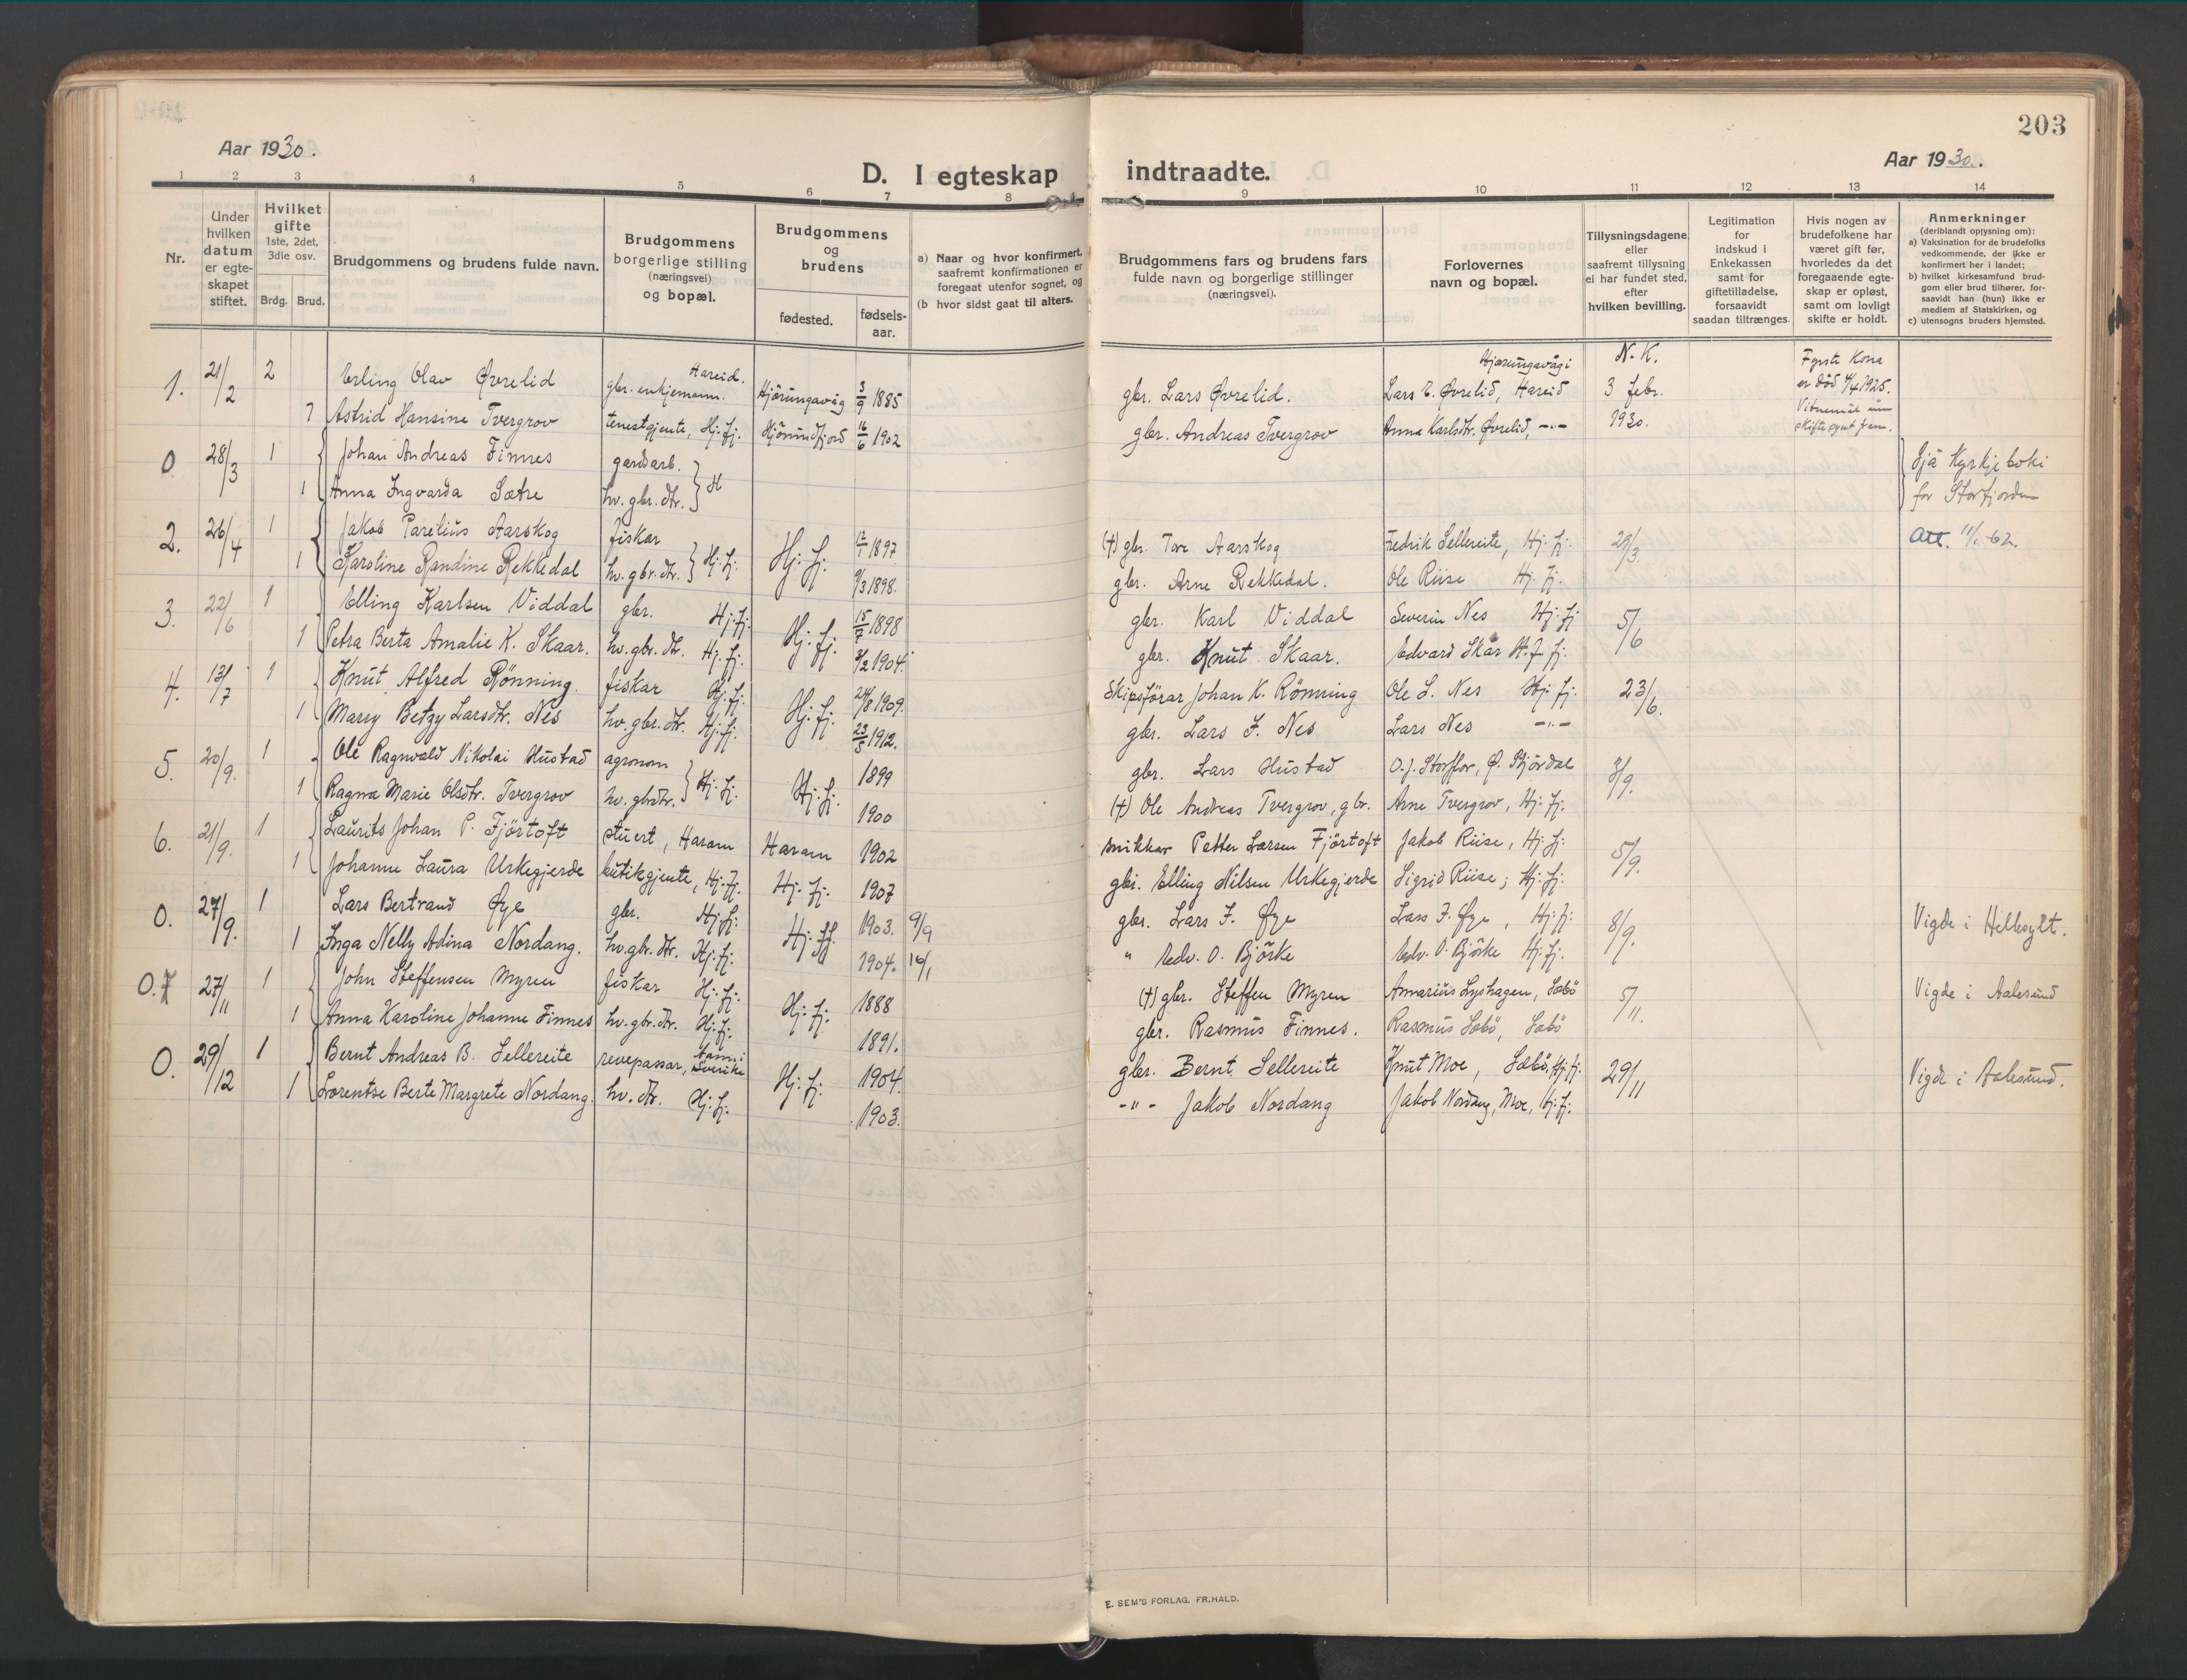 203
Aar 1930.
Aar 1930.
D. I egteskap indtraadte.
1 2 3 4 5 6 7 8 9 10 11 12 13 14
Nr.
Under hvilken datum er egte-skapet stiftet.
Hvilket gifte 1ste, 2det, 3die osv.
Brdg. Brud.
Brudgommens og brudens fulde navn.
Brudgommens borgerlige stilling (næringsvei) og bopæl.
Brudgommens og brudens
fødested. fødsels-aar.
a) Naar og hvor konfirmert, saafremt konfirmationen er foregaat utenfor sognet, og
(b hvor sidst gaat til alters.
Brudgommens fars og brudens fars fulde navn og borgerlige stillinger (næringsvei).
Forlovernes navn og bopæl.
Tillysningsdagene eller saafremt tillysning ei har fundet sted, efter hvilken bevilling.
Legitimation for indskud i Enkekassen samt for giftetilladelse, forsaavidt saadan tiltrænges.
Hvis nogen av brudefolkene har været gift før, hvorledes da det foregaaende egte-skap er opløst, samt om lovligt skifte er holdt.
Anmerkninger (deriblandt optysning om):
a) Vaksination for de brudefolks vedkommende, der ikke er konfirmert her i landet;
b) hvilket kirkesamfund brud-gom eller brud tilhører, for-saavidt han (hun) ikke er medlem af Statskirken, og
c) utensogns bruders hjemsted.
1. 21/2 2 Erling Olav Øvrelid gbr. enkjemann. Hareid. Hjørungavåg 3/9 1885 gbr. Lars Øvrelid. Lars E. Øvrelid, Hareid Hjørungavågi N. K. 3 febr. 1930. Fyrste Kona er död 4/4 1925.
1 Astrid Hansine Tvergrov tenestgjente, Hj.fj. Hjörundfjord 16/6 1902 gbr. Andreas Tvergrov Anna Karlsdtr. Øvrelid, -"-
0. 28/3 1 Johan Andreas Finnes gardsarb. Sjå Kyrkjeboki
1 Anna Ingvarda Sætre hv. gbr. dtr. } H for Storfjorden
2. 26/4 1 Jakob Parelius Aarskog fiskar Hj. fj. 1897. (†) gbr. Tore Aarskog Fredrik Sellereite, Hj. fj. 29/3. Att. 11/1-62.
1 Karoline Randine Rekkedal hv. gbr. dtr. } Hj. fj. 9/3 1898. gbr. Arne Rekkedal. Ole Riise Hj. fj.
3. 22/6 1 Elling Karlsen Viddal gbr. Hj. fj. Hj. fj. 15/7 1898 gbr. Karl Viddal Severin Nes Hj. fj 5/6
1 Petra Berta Amalie K. Skaar. hv. gbr. dtr. Hj. fj. 3/2 1904. gbr. Knut Skaar. Edvard Skår H. fj.
4. 13/7 1 Knut Alfred Rönning. fiskar Hj. fj. Hj. fj. 24/8 1909. Skipsförar Johan K. Rönning Ole L. Nes Hj. fj. 23/6.
1 Marry Betzy Larsdtr. Nes hv. gbr. dtr. Hj. fj. 23/5 1912. gbr. Lars J. Nes Lars Nes -"-
5. 20/9. 1 Ole Ragnvald Nikolai Hustad agronom Hj. fj. 1899 gbr. Lars Hustad O. J. Storflor, Ø. Stjördal 3/9.
1 Ragna Marie Olsdtr. Tvergrov hv. gbrdtr. } Hj. fj. 1900 (†) Ole Andreas Tvergrov, gbr. Arne Tvergrov, Hj. fj.
6. 21/9. 1 Laurits Johan P. Fjörtoft stuert, Haram Haram 1902 snikkar Petter Larsen Fjörtoft Jakob Riise, Hj. fj. 5/9.
1 Johanne Laura Urkegjerde butikgjente, Hj. fj. Hj. fj. 1907 gbr. Elling Nilsen Urkegjerde Sigrid Riise; Hj. fj.
0. 27/9. 1 Lars Bertrand Øye gbr. Hj. fj. Hj. fj. 1903. 9/9 gbr. Lars J. Øye Lars J. Øye, Hj. fj. 8/9. Vigde i Hellesylt.
1 Inga Nelly Adina Nordang. hv. gbr. dtr. Hj. fj. 1904. 16/1 " Edv. O. Björke Edv. O. Björke Hj. fj.
0.7 27/11 1 John Steffensen Myren fiskar Hj. fj. Hj. fj. 1888 (†) gbr. Steffen Myren Annarius Lyshagen, Sæbö 5/11. Vigde i Aalesund
1 Anna Karoline Johanne Finnes hv. gbr. dtr. Hj. fj. 1891. gbr. Rasmus Finnes. Rasmus Sæbö, Sæbö
0. 29/12 1 Bernt Andreas B. Sellereite revepassar, Sverike Hj. fj. 1904. gbr. Bernt Sellereite Knut Moe, Sæbö, Hj. fj. 29/11 Vigde i Aalesund.
1 Lorentse Berte Margrete Nordang. hv. dtr. Hj. fj. 1903. -"- Jakob Nordang Jakob Nordang, Moe, Hj. fj.
E. SEM'S FORLAG, FR.HALD.